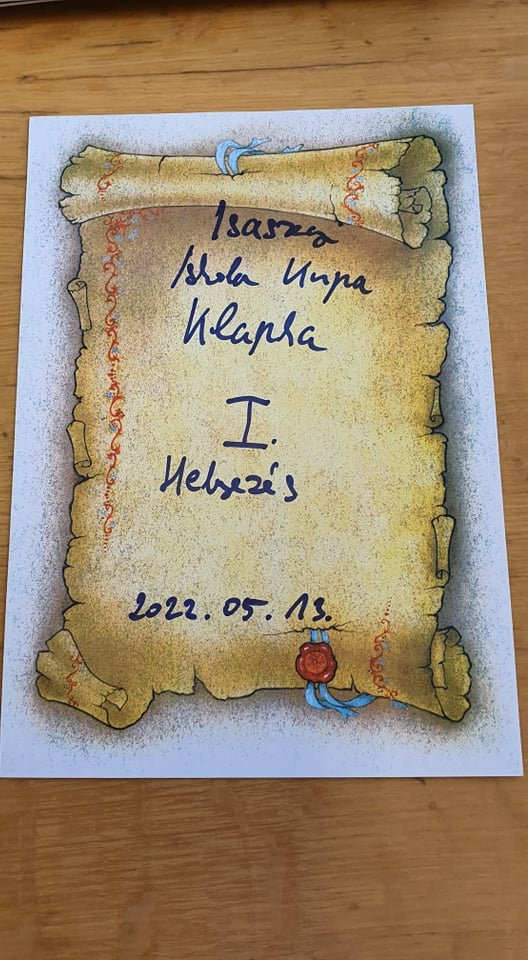 Isaszegi
Iskola Kupa
Klapka
I.
Helyezés
2022. 05. 13.